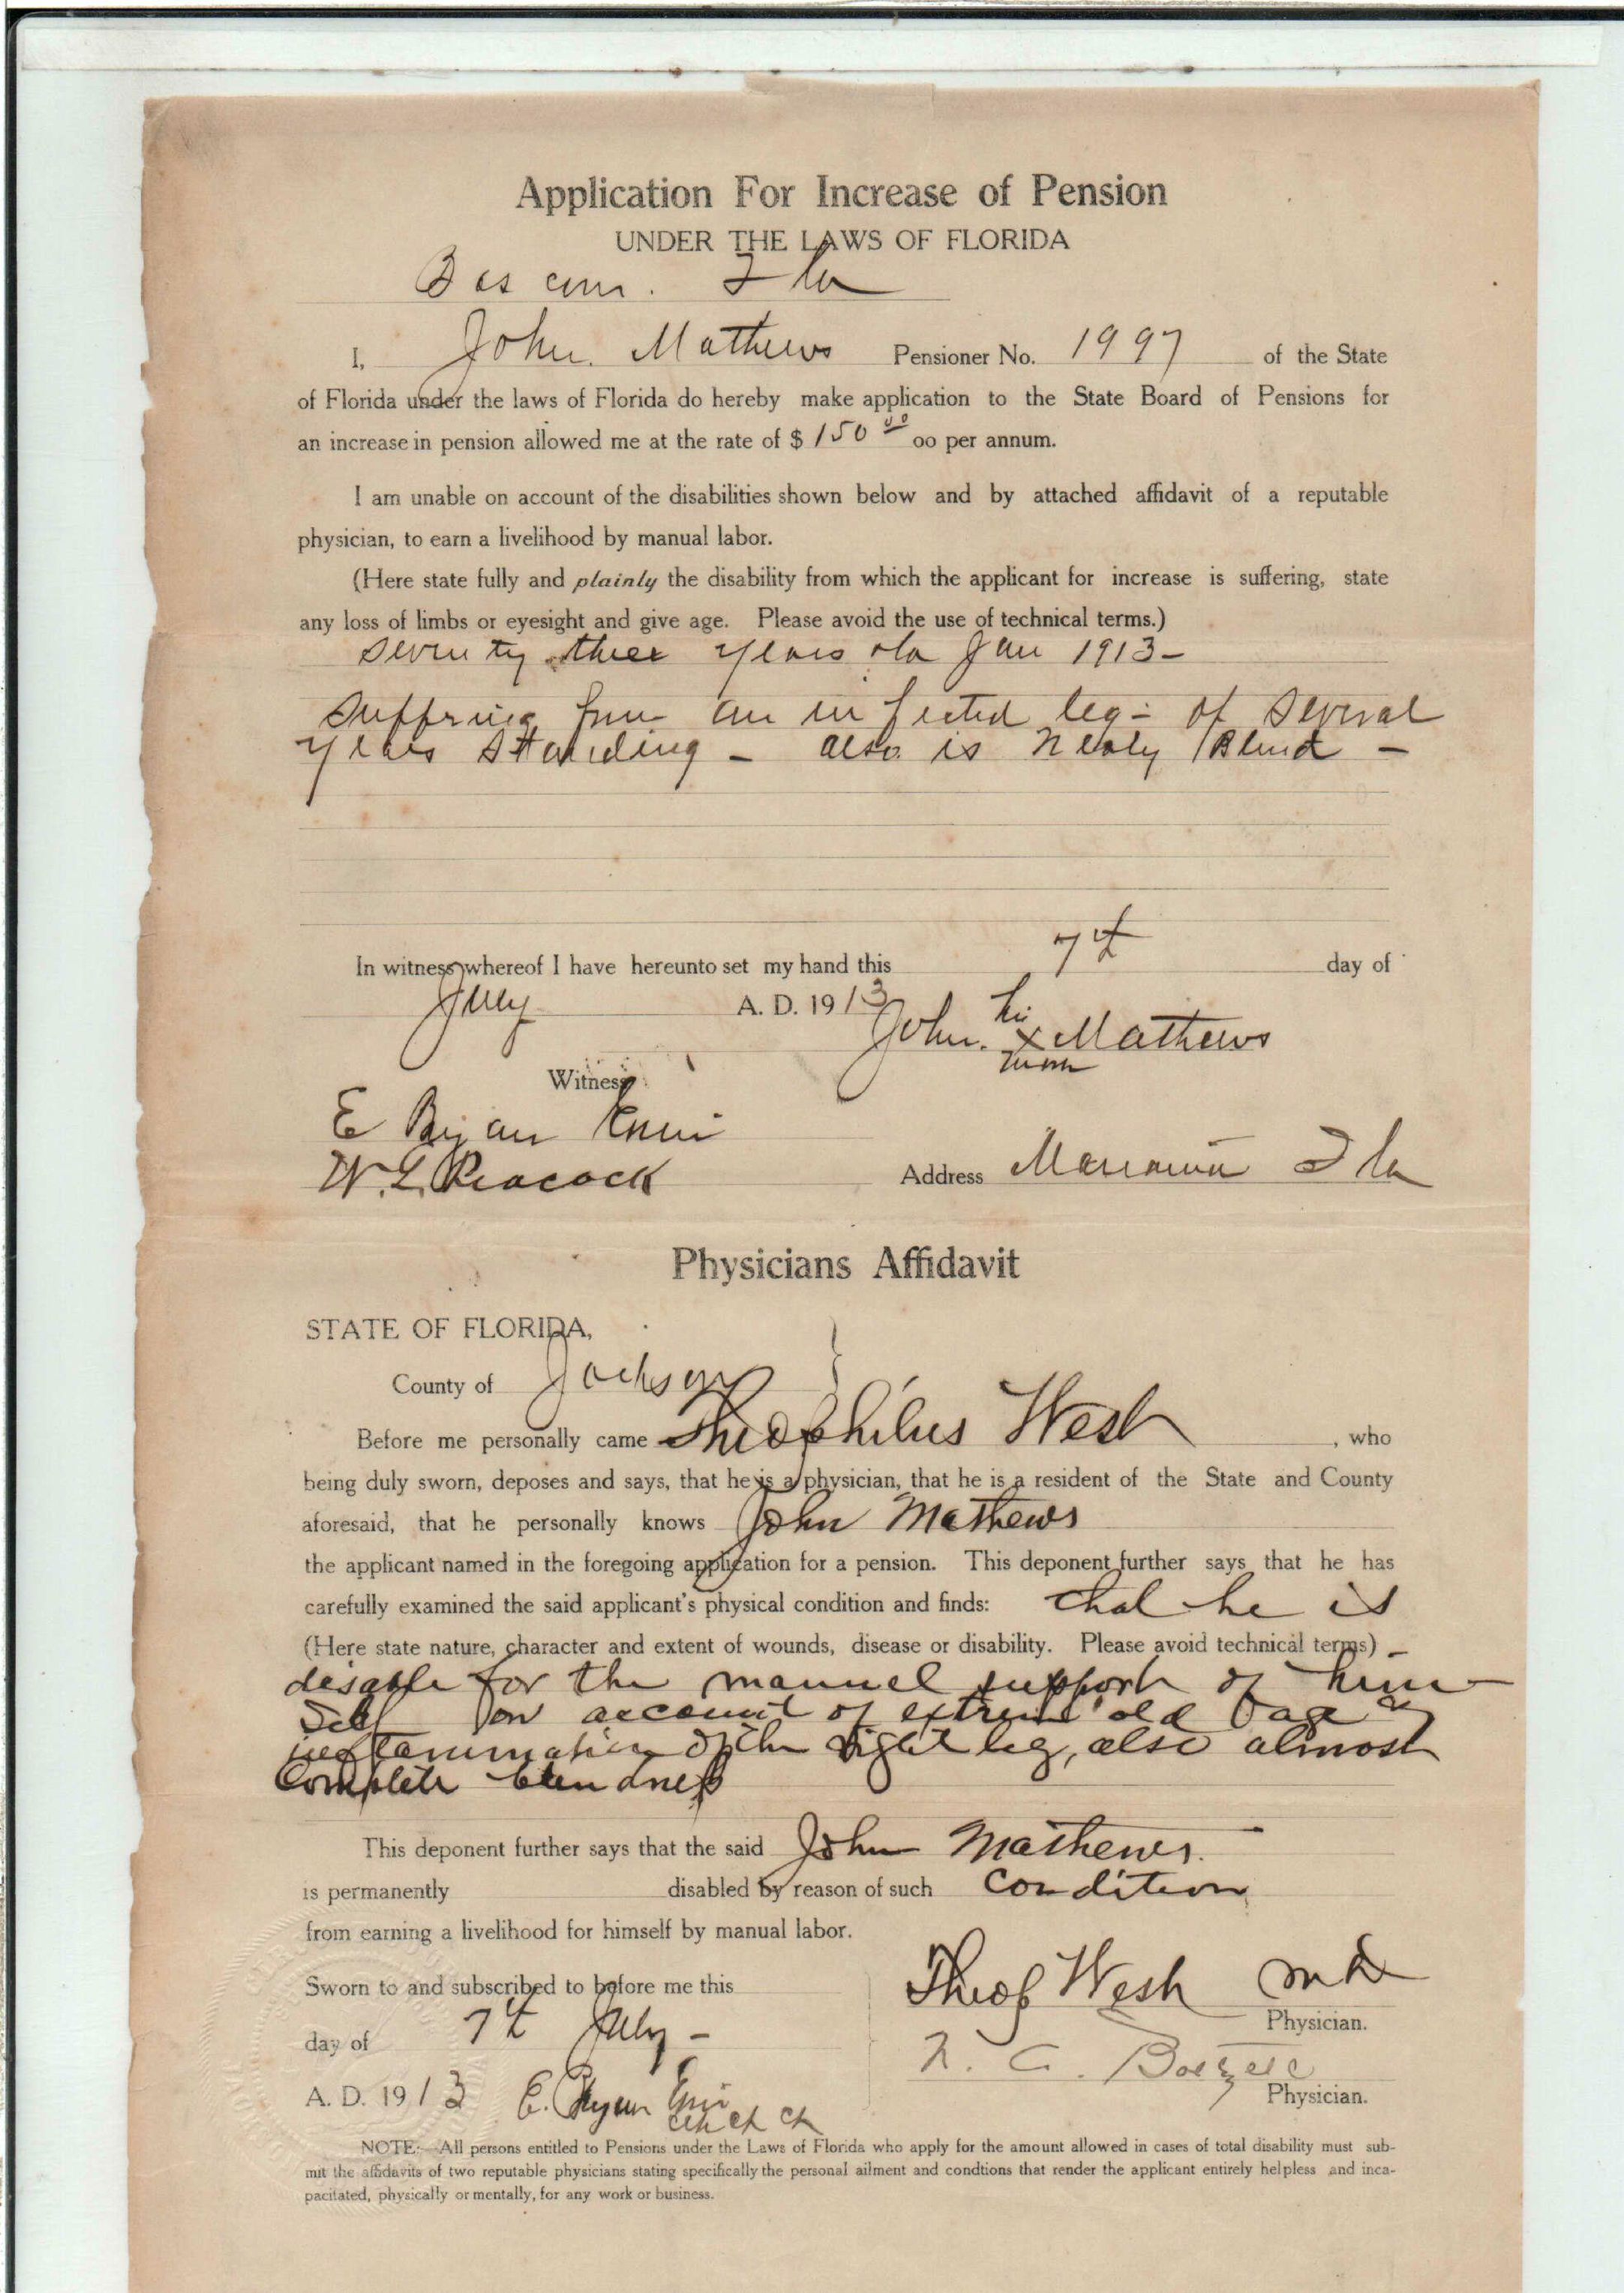 Application For Increase of Pension
UNDER THE LAWS OF FLORIDA
Bascom. Fla
I, John. Mathews Pensioner No. 1997 of the State
of Florida under the laws of Florida do hereby make application to the State Board of Pensions for
an increase in pension allowed me at the rate of $ 150 00 oo per annum.
I am unable on account of the disabilities shown below and by attached affidavit of a reputable
physician, to earn a livelihood by manual labor.
(Here state fully and plainly the disability from which the applicant for increase is suffering, state
any loss of limbs or eyesight and give age. Please avoid the use of technical terms.)
Seventy three years old Jan 1913-
Suffering from an infected leg - of Several
years standing - also is nearly Blind -
In witness whereof I have hereunto set my hand this 7th day of
July A. D. 1913
John. his x mark Mathews
Witness
E Bryan
W. L. Peacock
Address Marianna Fla
Physicians Affidavit
STATE OF FLORIDA, }
County of Jackson
Before me personally came Theophilus West , who
being duly sworn, deposes and says, that he is a physician, that he is a resident of the State and County
aforesaid, that he personally knows John Mathews
the applicant named in the foregoing application for a pension. This deponent further says that he has
carefully examined the said applicant's physical condition and finds: that he is
(Here state nature, character and extent of wounds, disease or disability. Please avoid technical terms) -
disable for the manuel support of him
Self on account of extreme old age &
inflammation of the right leg, also almost
Complete blindness
This deponent further says that the said John Mathews.
is permanently disabled by reason of such Condition
from earning a livelihood for himself by manual labor.
Sworn to and subscribed to before me this
day of 7th July -
A. D. 1913 E. Bryan
Theop West M D
Physician.
N. A. Baltzell
Physician.
NOTE:—All persons entitled to Pensions under the Laws of Florida who apply for the amount allowed in cases of total disability must sub-
mit the affidavits of two reputable physicians stating specifically the personal ailment and condtions that render the applicant entirely helpless and inca-
pacitated, physically or mentally, for any work or business.